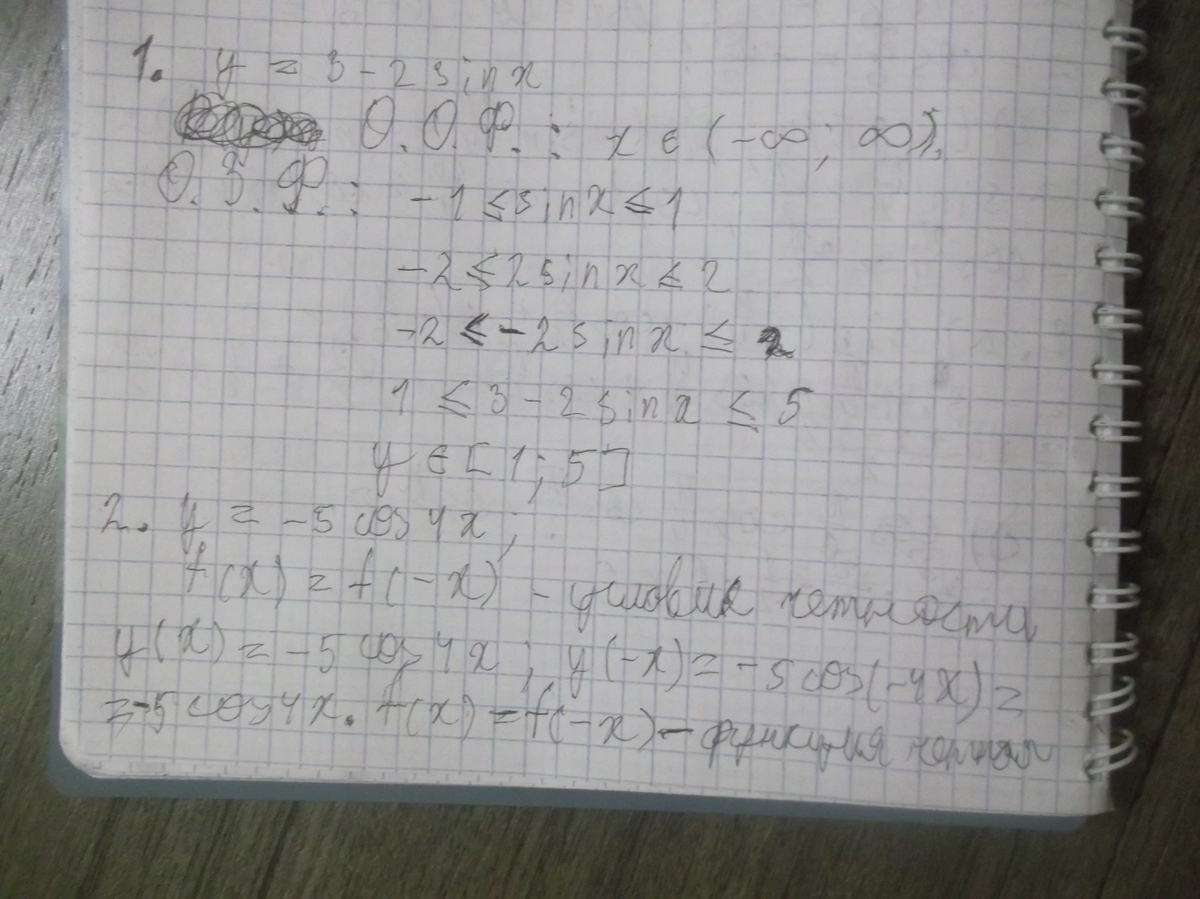 1. y = 3 - 2 sin x
О.О.Ф.: x ∈ (-∞; ∞).
О.З.Ф.: -1 ≤ sin x ≤ 1
-2 ≤ 2 sin x ≤ 2
-2 ≤ -2 sin x ≤ 2
1 ≤ 3 - 2 sin x ≤ 5
y ∈ [1; 5]
2. y = -5 cos 4x;
f(x) = f(-x) - условие четности
y(x) = -5 cos 4x; y(-x) = -5 cos(-4x) =
= -5 cos 4x. f(x) = f(-x) - функция четная